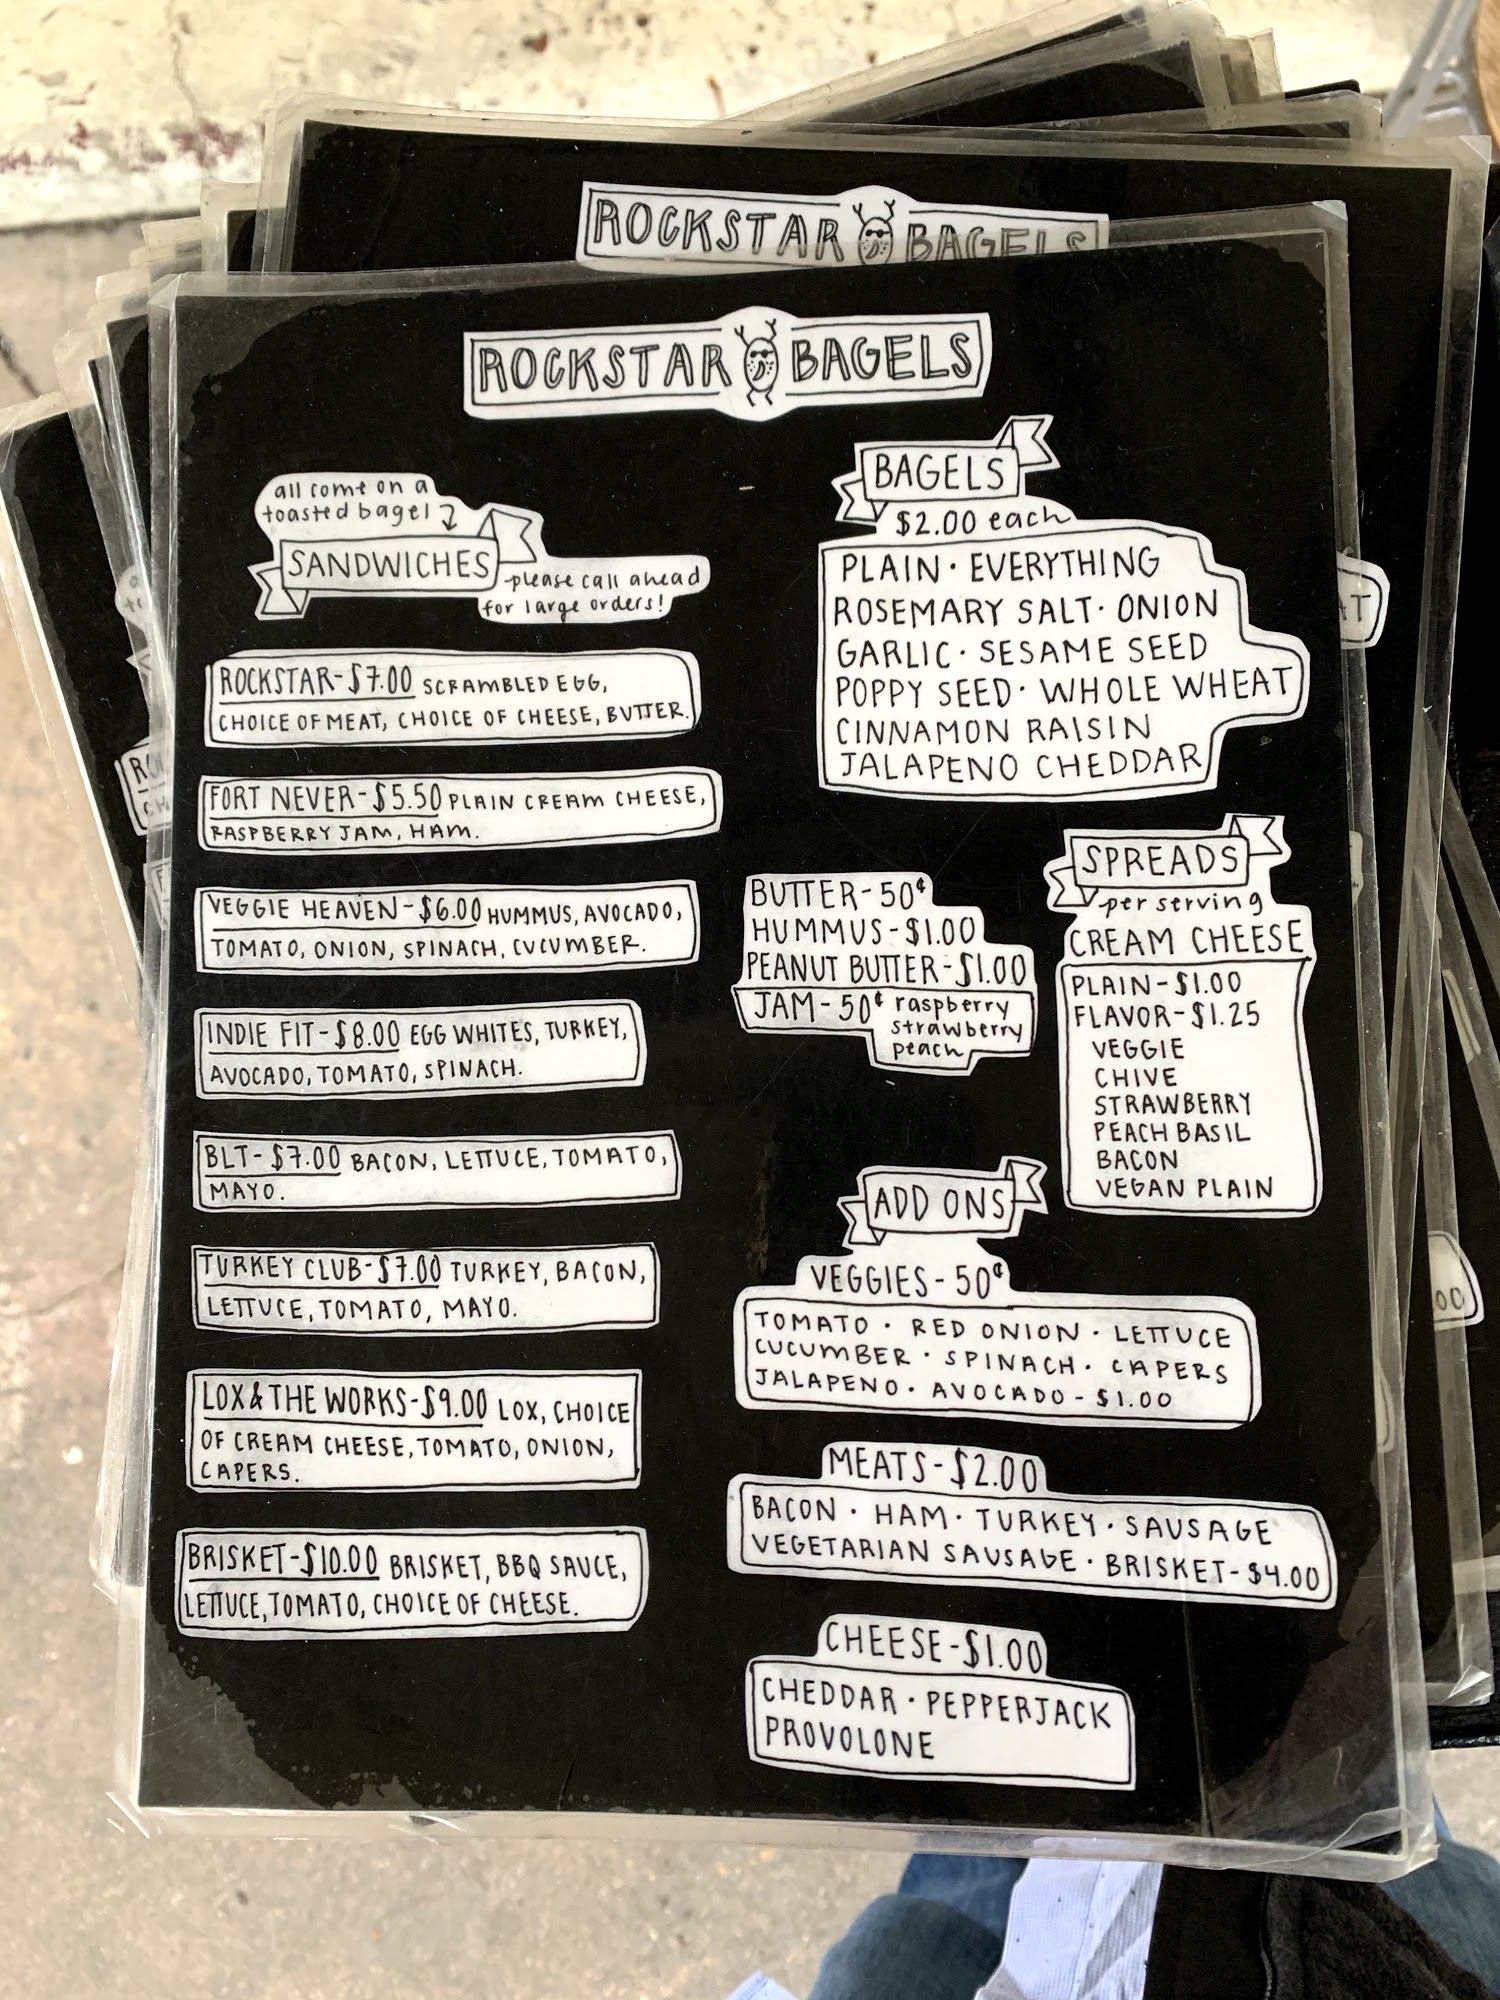 ROCKSTAR BAGELS
ROCKSTAR BAGELS
all come on a
toasted bagel
SANDWICHES
please call ahead
for large orders!
ROCKSTAR-$7.00 SCRAMBLED EGG,
CHOICE OF MEAT, CHOICE OF CHEESE, BUTTER.
FORT NEVER-$5.50 PLAIN CREAM CHEESE,
RASPBERRY JAM, HAM.
VEGGIE HEAVEN-$6.00 HUMMUS, AVOCADO,
TOMATO, ONION, SPINACH, CUCUMBER.
INDIE FIT-$8.00 EGG WHITES, TURKEY,
AVOCADO, TOMATO, SPINACH.
BLT-$7.00 BACON, LETTUCE, TOMATO,
MAYO.
TURKEY CLUB-$7.00 TURKEY, BACON,
LETTUCE, TOMATO, MAYO.
LOX & THE WORKS-$9.00 LOX, CHOICE
OF CREAM CHEESE, TOMATO, ONION,
CAPERS.
BRISKET-$10.00 BRISKET, BBQ SAUCE,
LETTUCE, TOMATO, CHOICE OF CHEESE.
BAGELS
$2.00 each
PLAIN · EVERYTHING
ROSEMARY SALT · ONION
GARLIC · SESAME SEED
POPPY SEED · WHOLE WHEAT
CINNAMON RAISIN
JALAPENO CHEDDAR
BUTTER-50¢
HUMMUS-$1.00
PEANUT BUTTER-$1.00
JAM-50¢ raspberry
strawberry
peach
SPREADS
per serving
CREAM CHEESE
PLAIN-$1.00
FLAVOR-$1.25
VEGGIE
CHIVE
STRAWBERRY
PEACH BASIL
BACON
VEGAN PLAIN
ADD ONS
VEGGIES-50¢
TOMATO · RED ONION · LETTUCE
CUCUMBER · SPINACH · CAPERS
JALAPENO · AVOCADO-$1.00
MEATS-$2.00
BACON · HAM · TURKEY · SAUSAGE
VEGETARIAN SAUSAGE · BRISKET-$4.00
CHEESE-$1.00
CHEDDAR · PEPPERJACK
PROVOLONE